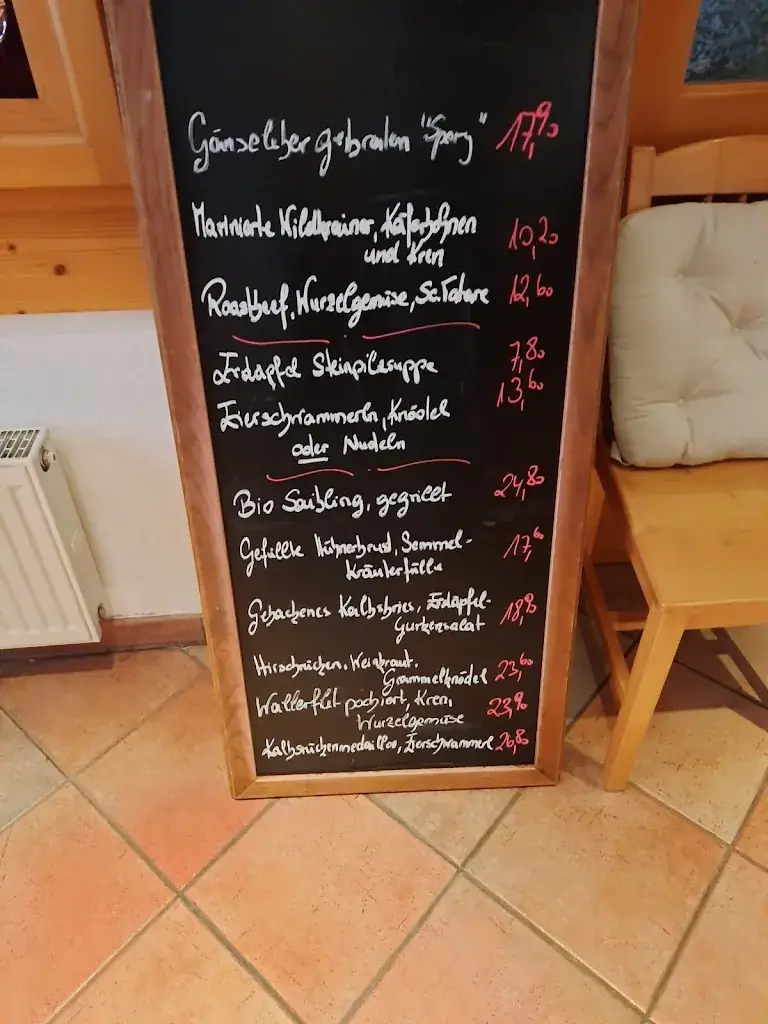 Gänseleber gebraten 17,90
Marinierte Wildkrainer, Käferbohnen 10,20
und Kren
Roastbeef, Wurzelgemüse, Sc. Tatare 12,60
Erdäpfel Steinpilzsuppe 7,80
Eierschwammerln, Knödel 13,60
oder Nudeln
Bio Saibling, gegrillt 24,80
Gefüllte Hühnerbrust, Semmel- 17,60
Kräuterfülle
Gebackenes Kalbsbries, Erdäpfel- 18,90
Gurkensalat
Hirschrücken, Weinkraut, 23,60
Grammelknödel
Wallerfilet pochiert, Kren, 23,90
Wurzelgemüse
Kalbsrückenmedaillon, Eierschwammerl 26,80